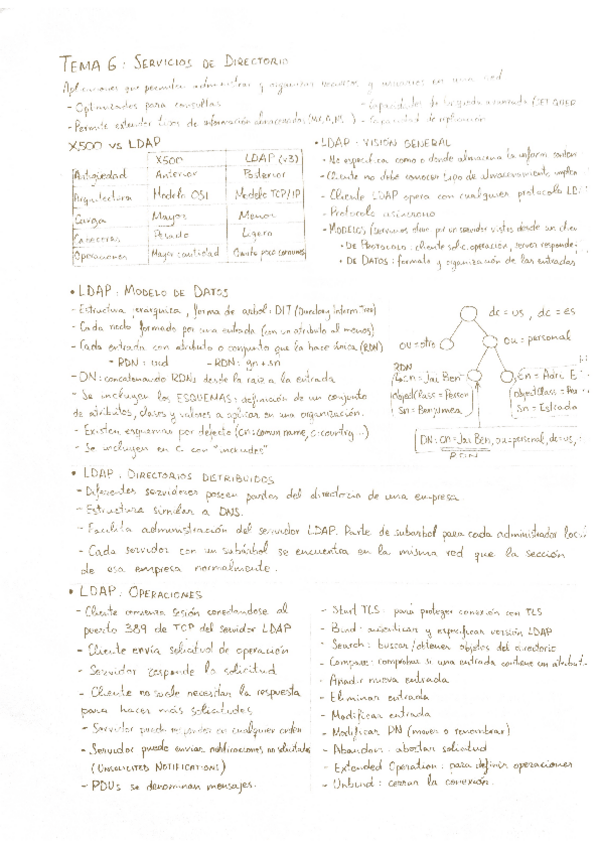 TEMA 6: SERVICIOS DE DIRECTORIO
Aplicaciones que permiten administrar y organizar recursos y usuarios en una red
- Optimizados para consultas
- Permite extender tipos de información almacenada
X500 vs LDAP
X500 LDAP (v3)
Antigüedad Anterior Posterior
Arquitectura Modelo OSI Modelo TCP/IP
Carga Mayor Menor
Cabeceras Pesado Ligero
Operaciones Mayor cantidad Omite poco comunes
• LDAP: VISIÓN GENERAL
- No especifica como o donde almacena la inform
- Cliente no debe conocer tipo de almacenamiento
- Cliente LDAP opera con cualquier protocolo
- Protocolo asíncrono
- MODELOS
• DE PROTOCOLO: cliente solic. operación, server responde
• DE DATOS: formato y organización de las entradas
• LDAP: MODELO DE DATOS
- Estructura jerarquica, forma de arbol: DIT (Directory Inform Tree)
- Cada nodo formado por una entrada (con un atributo al menos)
- Cada entrada con atributo o conjunto que la hace única (RDN)
- RDN: uid - RDN: gn + sn
- DN: concatenando RDNs desde la raiz a la entrada
- Se incluyen los ESQUEMAS: definición de un conjunto
de atributos, clases y valores a aplicar en una organización.
- Existen esquemas por defecto (cn: comun name, c: country..)
- Se incluyen en C. con "includes"
dc = us, dc = es
ou = otro
ou = personal
RDN
cn = Jai Ben
objectClass = Person
sn = Benjumea
objectClass = Pe
DN: cn = Jai Ben, ou = personal, dc = us,
• LDAP. DIRECTORIOS DISTRIBUIDOS
- Diferentes servidores poseen partes del directorio de una empresa.
- Estructura similar a DNS.
- Facilita administración del servidor LDAP. Parte de subarbol para cada administrador
- Cada servidor con un subárbol se encuentra en la misma red que la sección
de esa empresa normalmente.
• LDAP: OPERACIONES
- Cliente comienza sesión conectandose al
puerto 389 de TCP del servidor LDAP
- Cliente envía solicitud de operación
- Servidor responde la solicitud
- Cliente no suele necesitar la respuesta
para hacer más solicitudes
- Servidor puede responder en cualquier orden
- Servidor puede enviar notificaciones no solicitadas
(UNSOLICITED NOTIFICATIONS)
- PDUs se denominan mensajes.
- Start TLS: para proteger conexión con TLS
- Bind: autenticar y especificar versión LDAP
- Search: buscar/obtener objetos del directorio
- Compare: comprobar si una entrada contiene un atribut
- Añadir nueva entrada
- Eliminar entrada
- Modificar entrada
- Modificar DN (mover o renombrar)
- Abandon: abortar solicitud
- Extended Operation: para definir operaciones
- Unbind: cerrar la conexión.